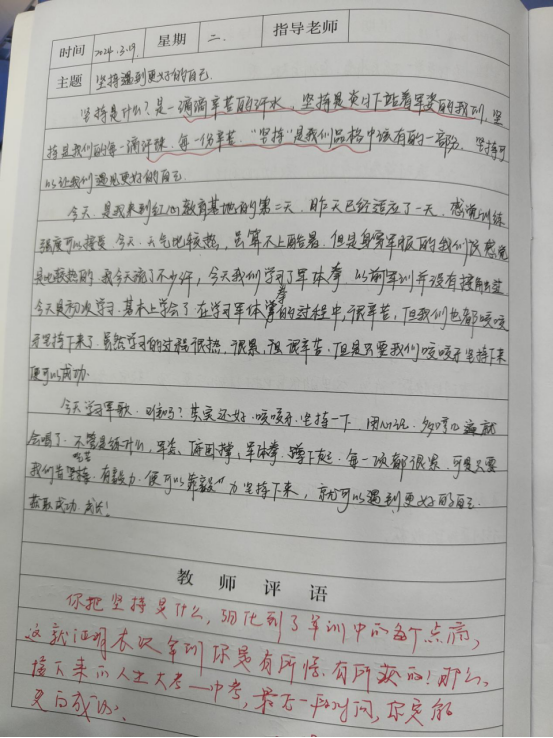 时间 2024.3.19. 星期 二. 指导老师
主题 坚持遇到更好的自己.
坚持是什么?是一滴滴辛苦的汗水, 坚持是炎日下站着军姿的我们, 坚
持是我们的每一滴汗珠, 每一份辛苦. "坚持"是我们品格中该有的一部分. 坚持可
以让我们遇见更好的自己.
今天, 是我来到红山教育基地的第二天, 昨天已经适应了一天, 感觉训练
强度可以接受. 今天, 天气比较热, 虽算不上酷暑, 但是身穿军服的我们还感觉
是比较热的. 我今天流了不少汗, 今天我们学习了军体拳. 以前军训并没有接触
今天是初次学习. 基本上学会了. 在学习军体拳的过程中, 很辛苦, 但我们也都咬咬
牙坚持下来了. 虽然学习的过程很热, 很累, 很辛苦. 但是只要我们咬咬牙坚持下来
便可以成功.
今天学习军歌. 难吗? 其实还好. 咬咬牙. 坚持一下. 用心记. 多唱几遍就
会唱了. 不管是练什么, 军姿, 俯卧撑, 军体拳, 蹲下起. 每一项都很累. 可是只要
我们肯吃苦坚持. 有毅力. 便可以靠毅力坚持下来, 就可以遇到更好的自己.
获取成功. 成长!
教师评语
你把坚持是什么, 细化到了军训中的每个点滴,
这就证明本次军训你是有所悟, 有所获的! 那么,
接下来的人生大考——中考, 最后一年时间, 你定能
更向成功.